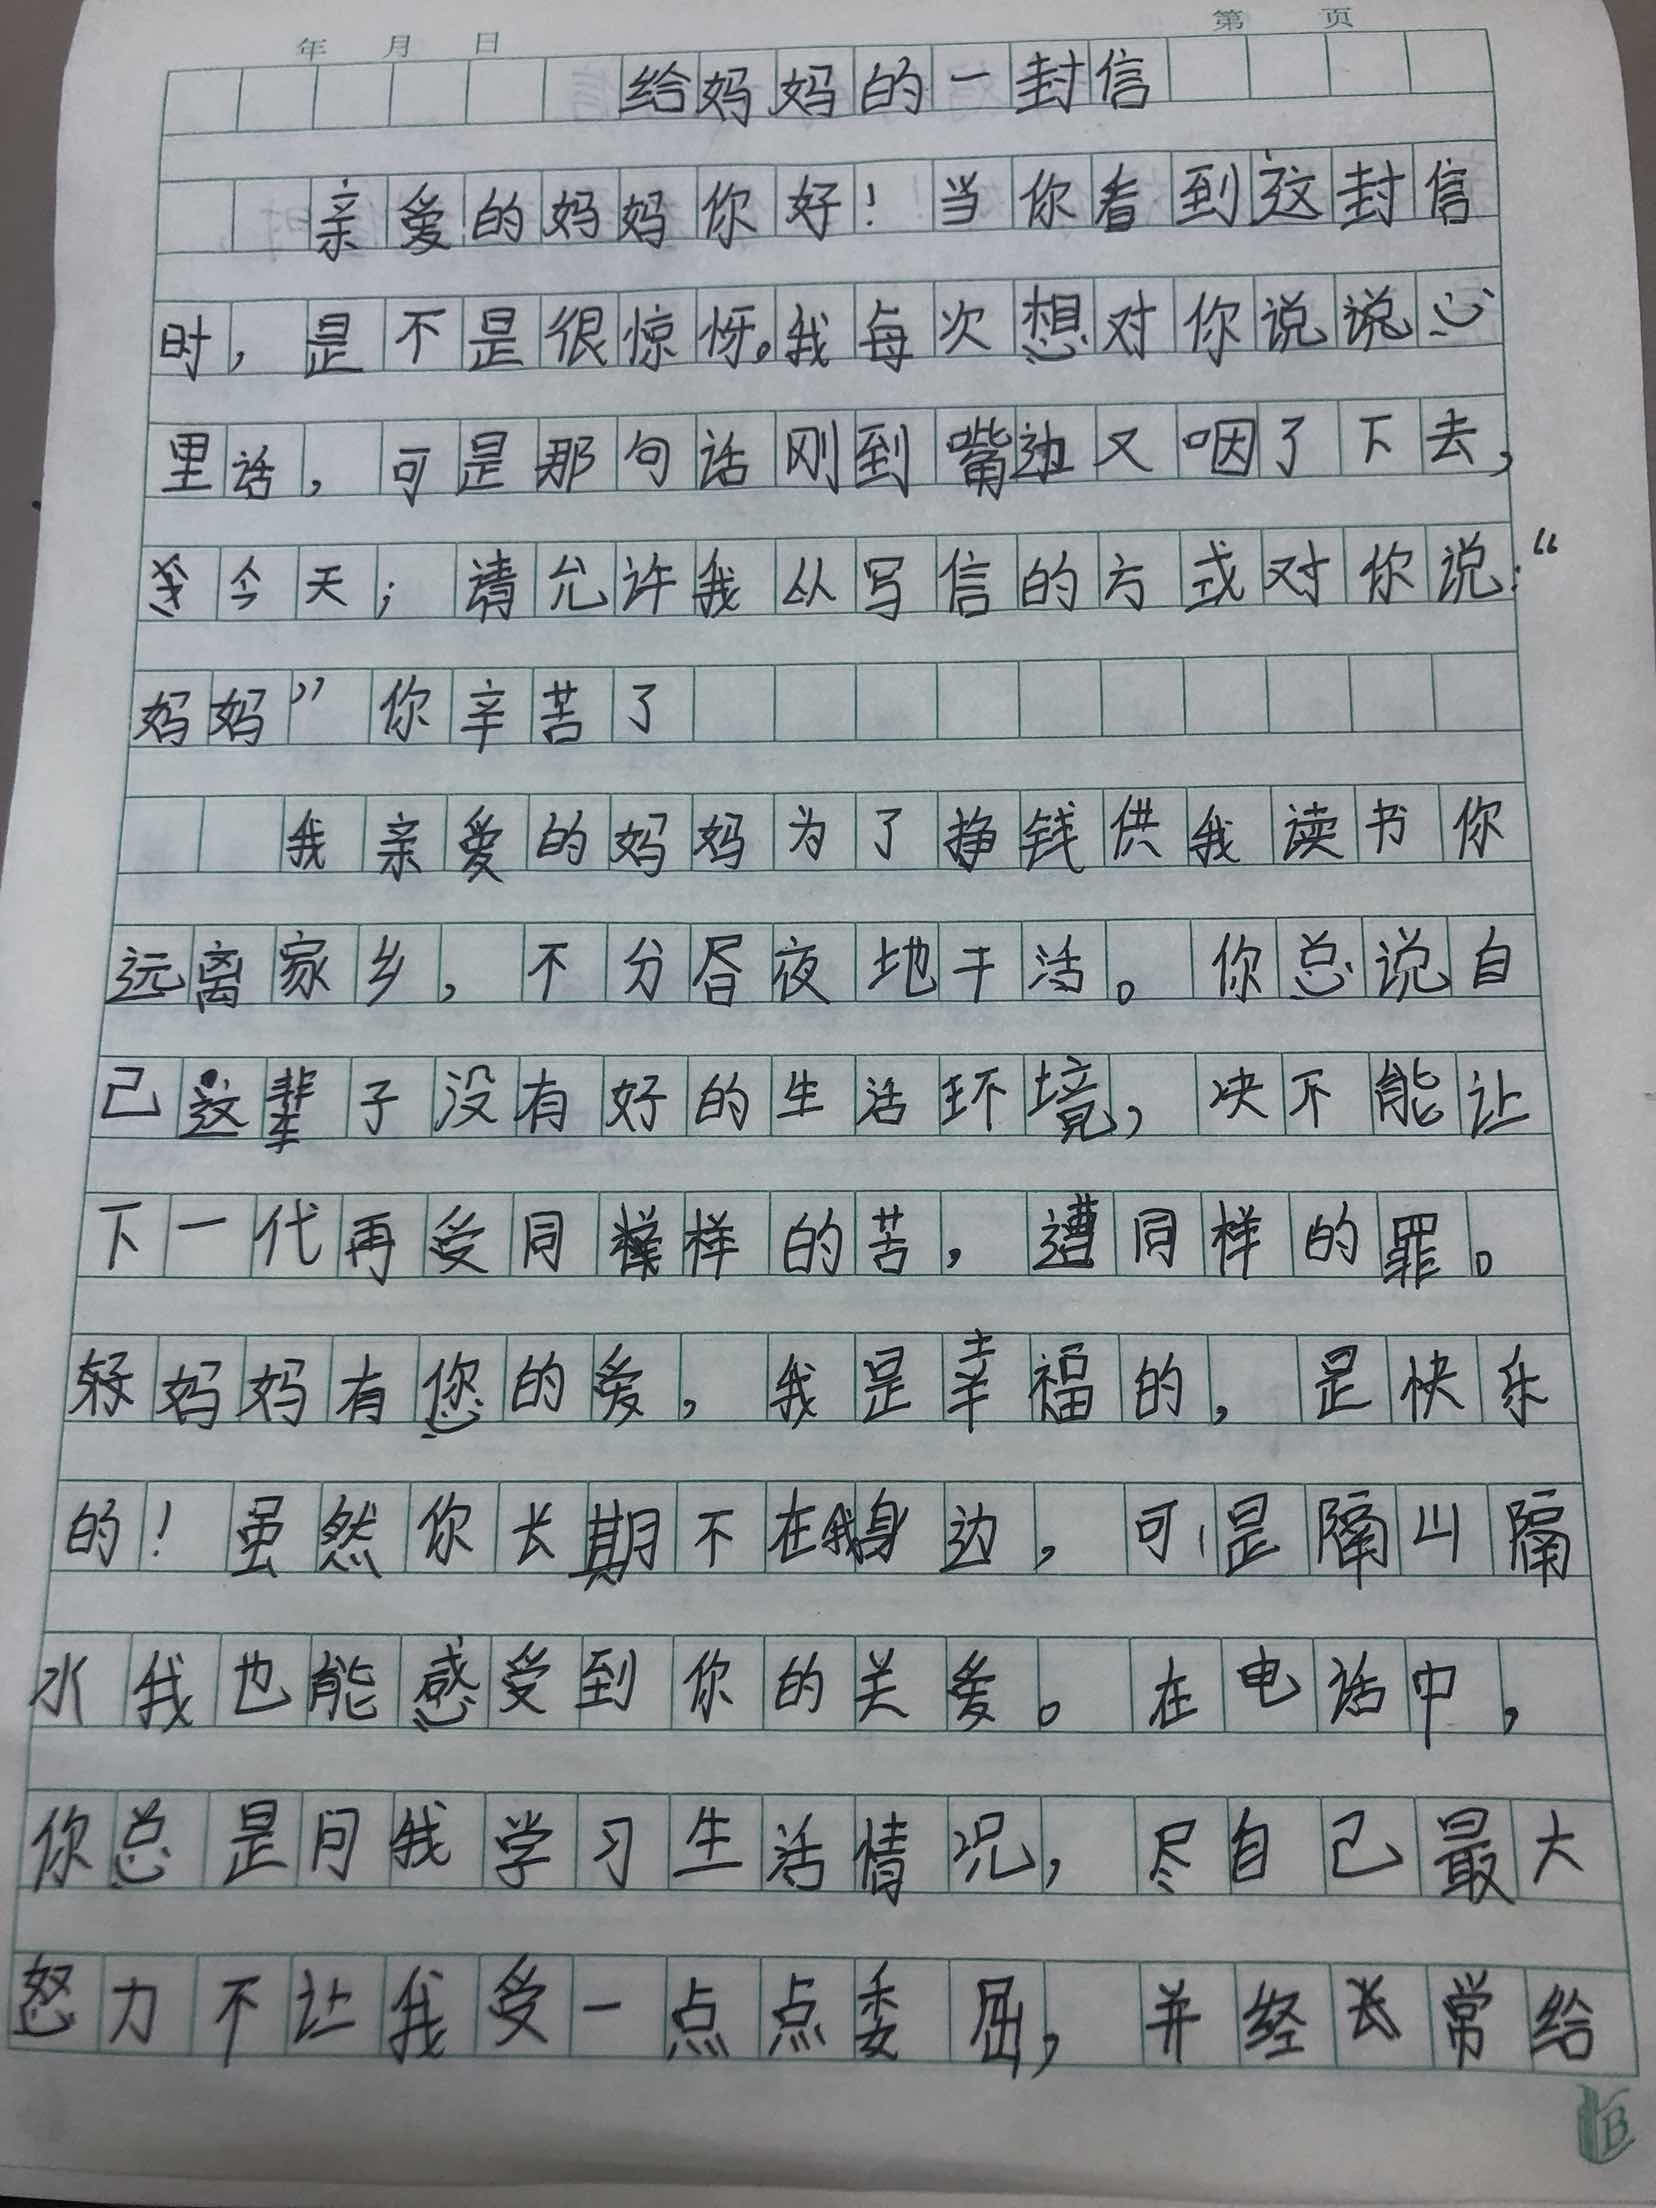 年 月 日 第 页
给妈妈的一封信
亲爱的妈妈你好！当你看到这封信
时，是不是很惊讶。我每次想对你说说心
里话，可是那句话刚到嘴边又咽了下去，
今天；请允许我从写信的方式对你说：“
妈妈”你辛苦了
我亲爱的妈妈为了挣钱供我读书你
远离家乡，不分昼夜地干活。你总说自
己这辈子没有好的生活环境，决不能让
下一代再受同样的苦，遭同样的罪。
妈妈有您的爱，我是幸福的，是快乐
的！虽然你长期不在我身边，可是隔山隔
水我也能感受到你的关爱。在电话中，
你总是问我学习生活情况，尽自己最大
怒力不让我受一点点委屈，并经常给
B